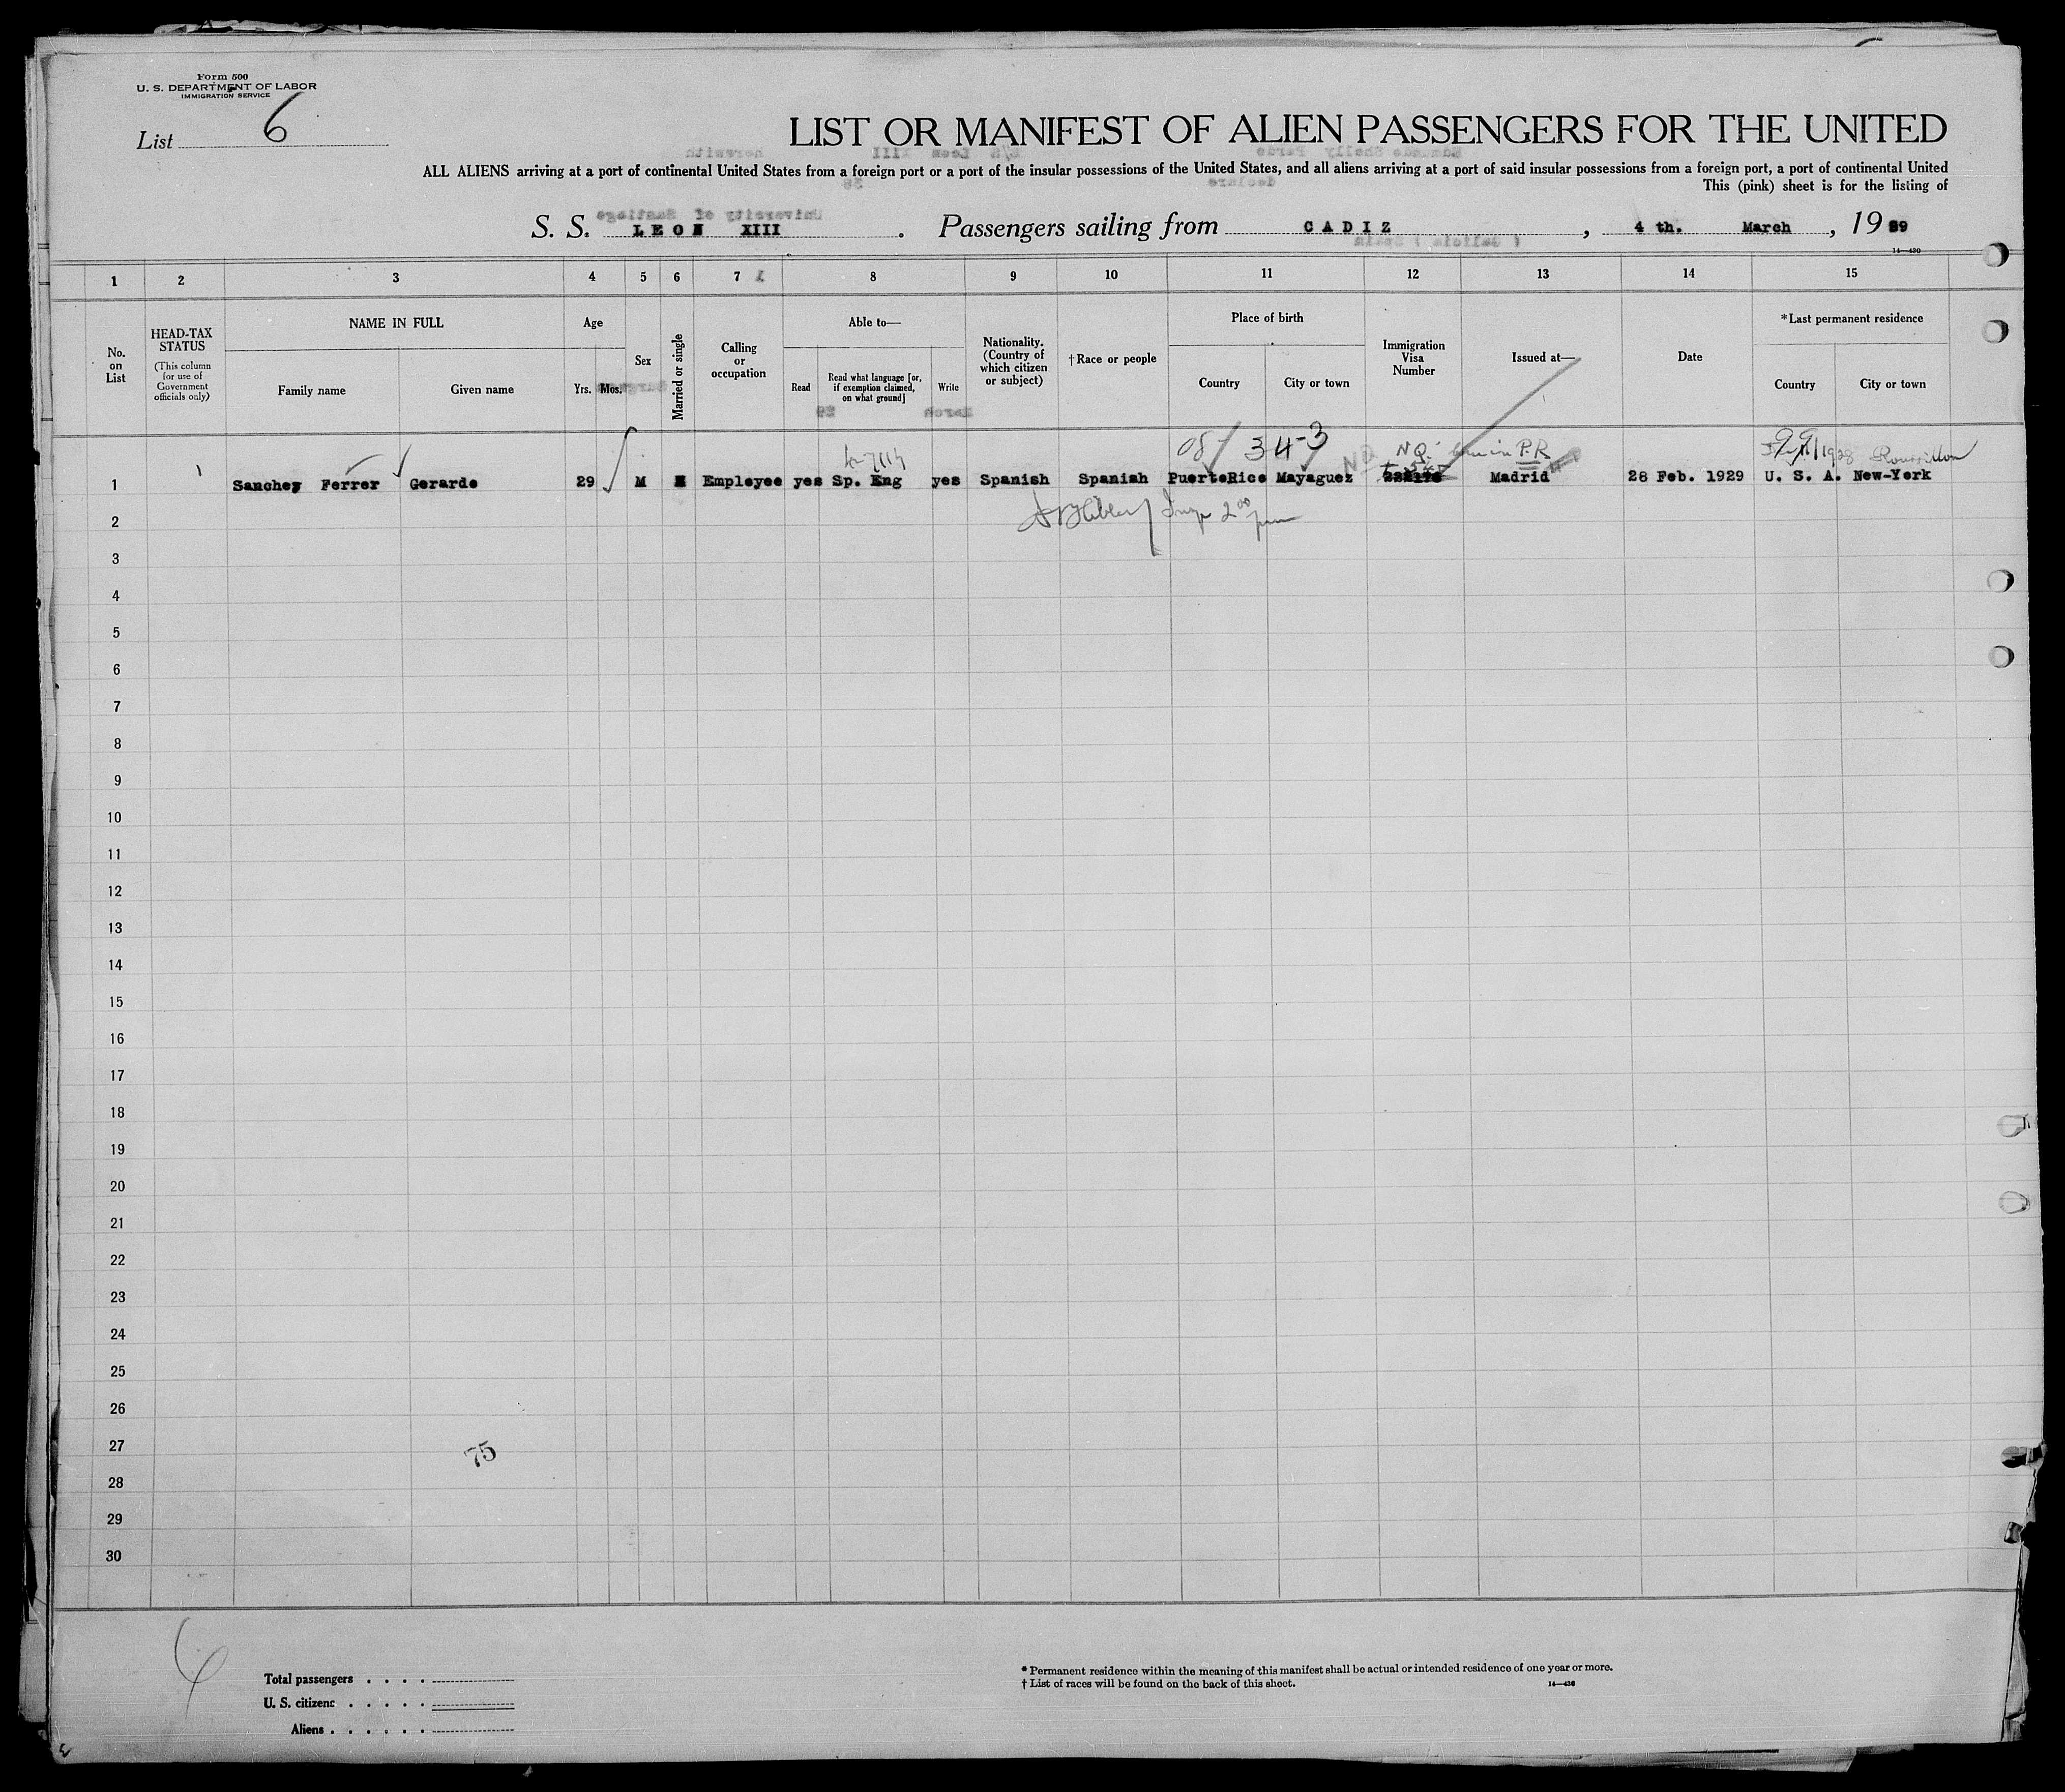 Form 500
U. S. DEPARTMENT OF LABOR
IMMIGRATION SERVICE
List 6
LIST OR MANIFEST OF ALIEN PASSENGERS FOR THE UNITED
ALL ALIENS arriving at a port of continental United States from a foreign port or a port of the insular possessions of the United States, and all aliens arriving at a port of said insular possessions from a foreign port, a port of continental United
This (pink) sheet is for the listing of
S. S. LEON XIII. Passengers sailing from CADIZ, 4 th. March, 1929
14—430
1 2 3 4 5 6 7 8 9 10 11 12 13 14 15
No. on List
HEAD-TAX STATUS
(This column for use of Government officials only)
NAME IN FULL
Family name Given name
Age
Yrs. Mos.
Sex
Married or single
Calling or occupation
Able to—
Read
Read what language [or, if exemption claimed, on what ground]
Write
Nationality. (Country of which citizen or subject)
†Race or people
Place of birth
Country City or town
Immigration Visa Number
Issued at—
Date
*Last permanent residence
Country City or town
08 34-3 NQ P.R 1928
1 Sanchez Ferrer Gerardo 29 M Employee yes Sp. Eng yes Spanish Spanish PuertoRico Mayaguez Madrid 28 Feb. 1929 U. S. A. New-York
2
3
4
5
6
7
8
9
10
11
12
13
14
15
16
17
18
19
20
21
22
23
24
25
26
27
75
28
29
30
6
Total passengers
U. S. citizens
Aliens
* Permanent residence within the meaning of this manifest shall be actual or intended residence of one year or more.
† List of races will be found on the back of this sheet.
14—430